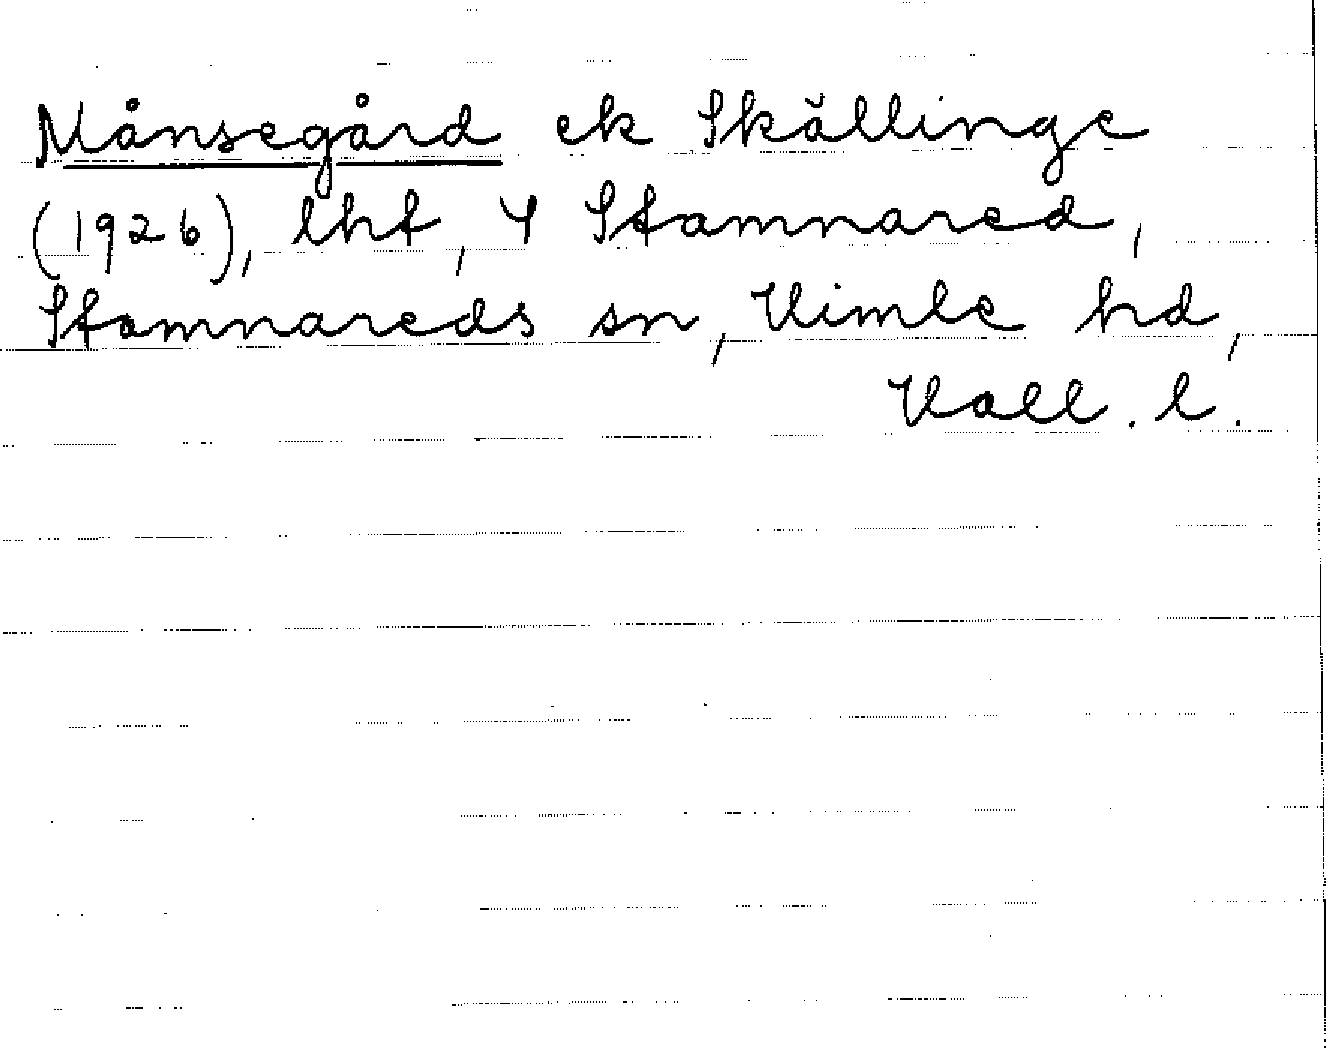 Månsegård ek Skällinge
(1926), lht, 4 Stamnared,
Stamnareds sn, Himle hd,
Hall. l.